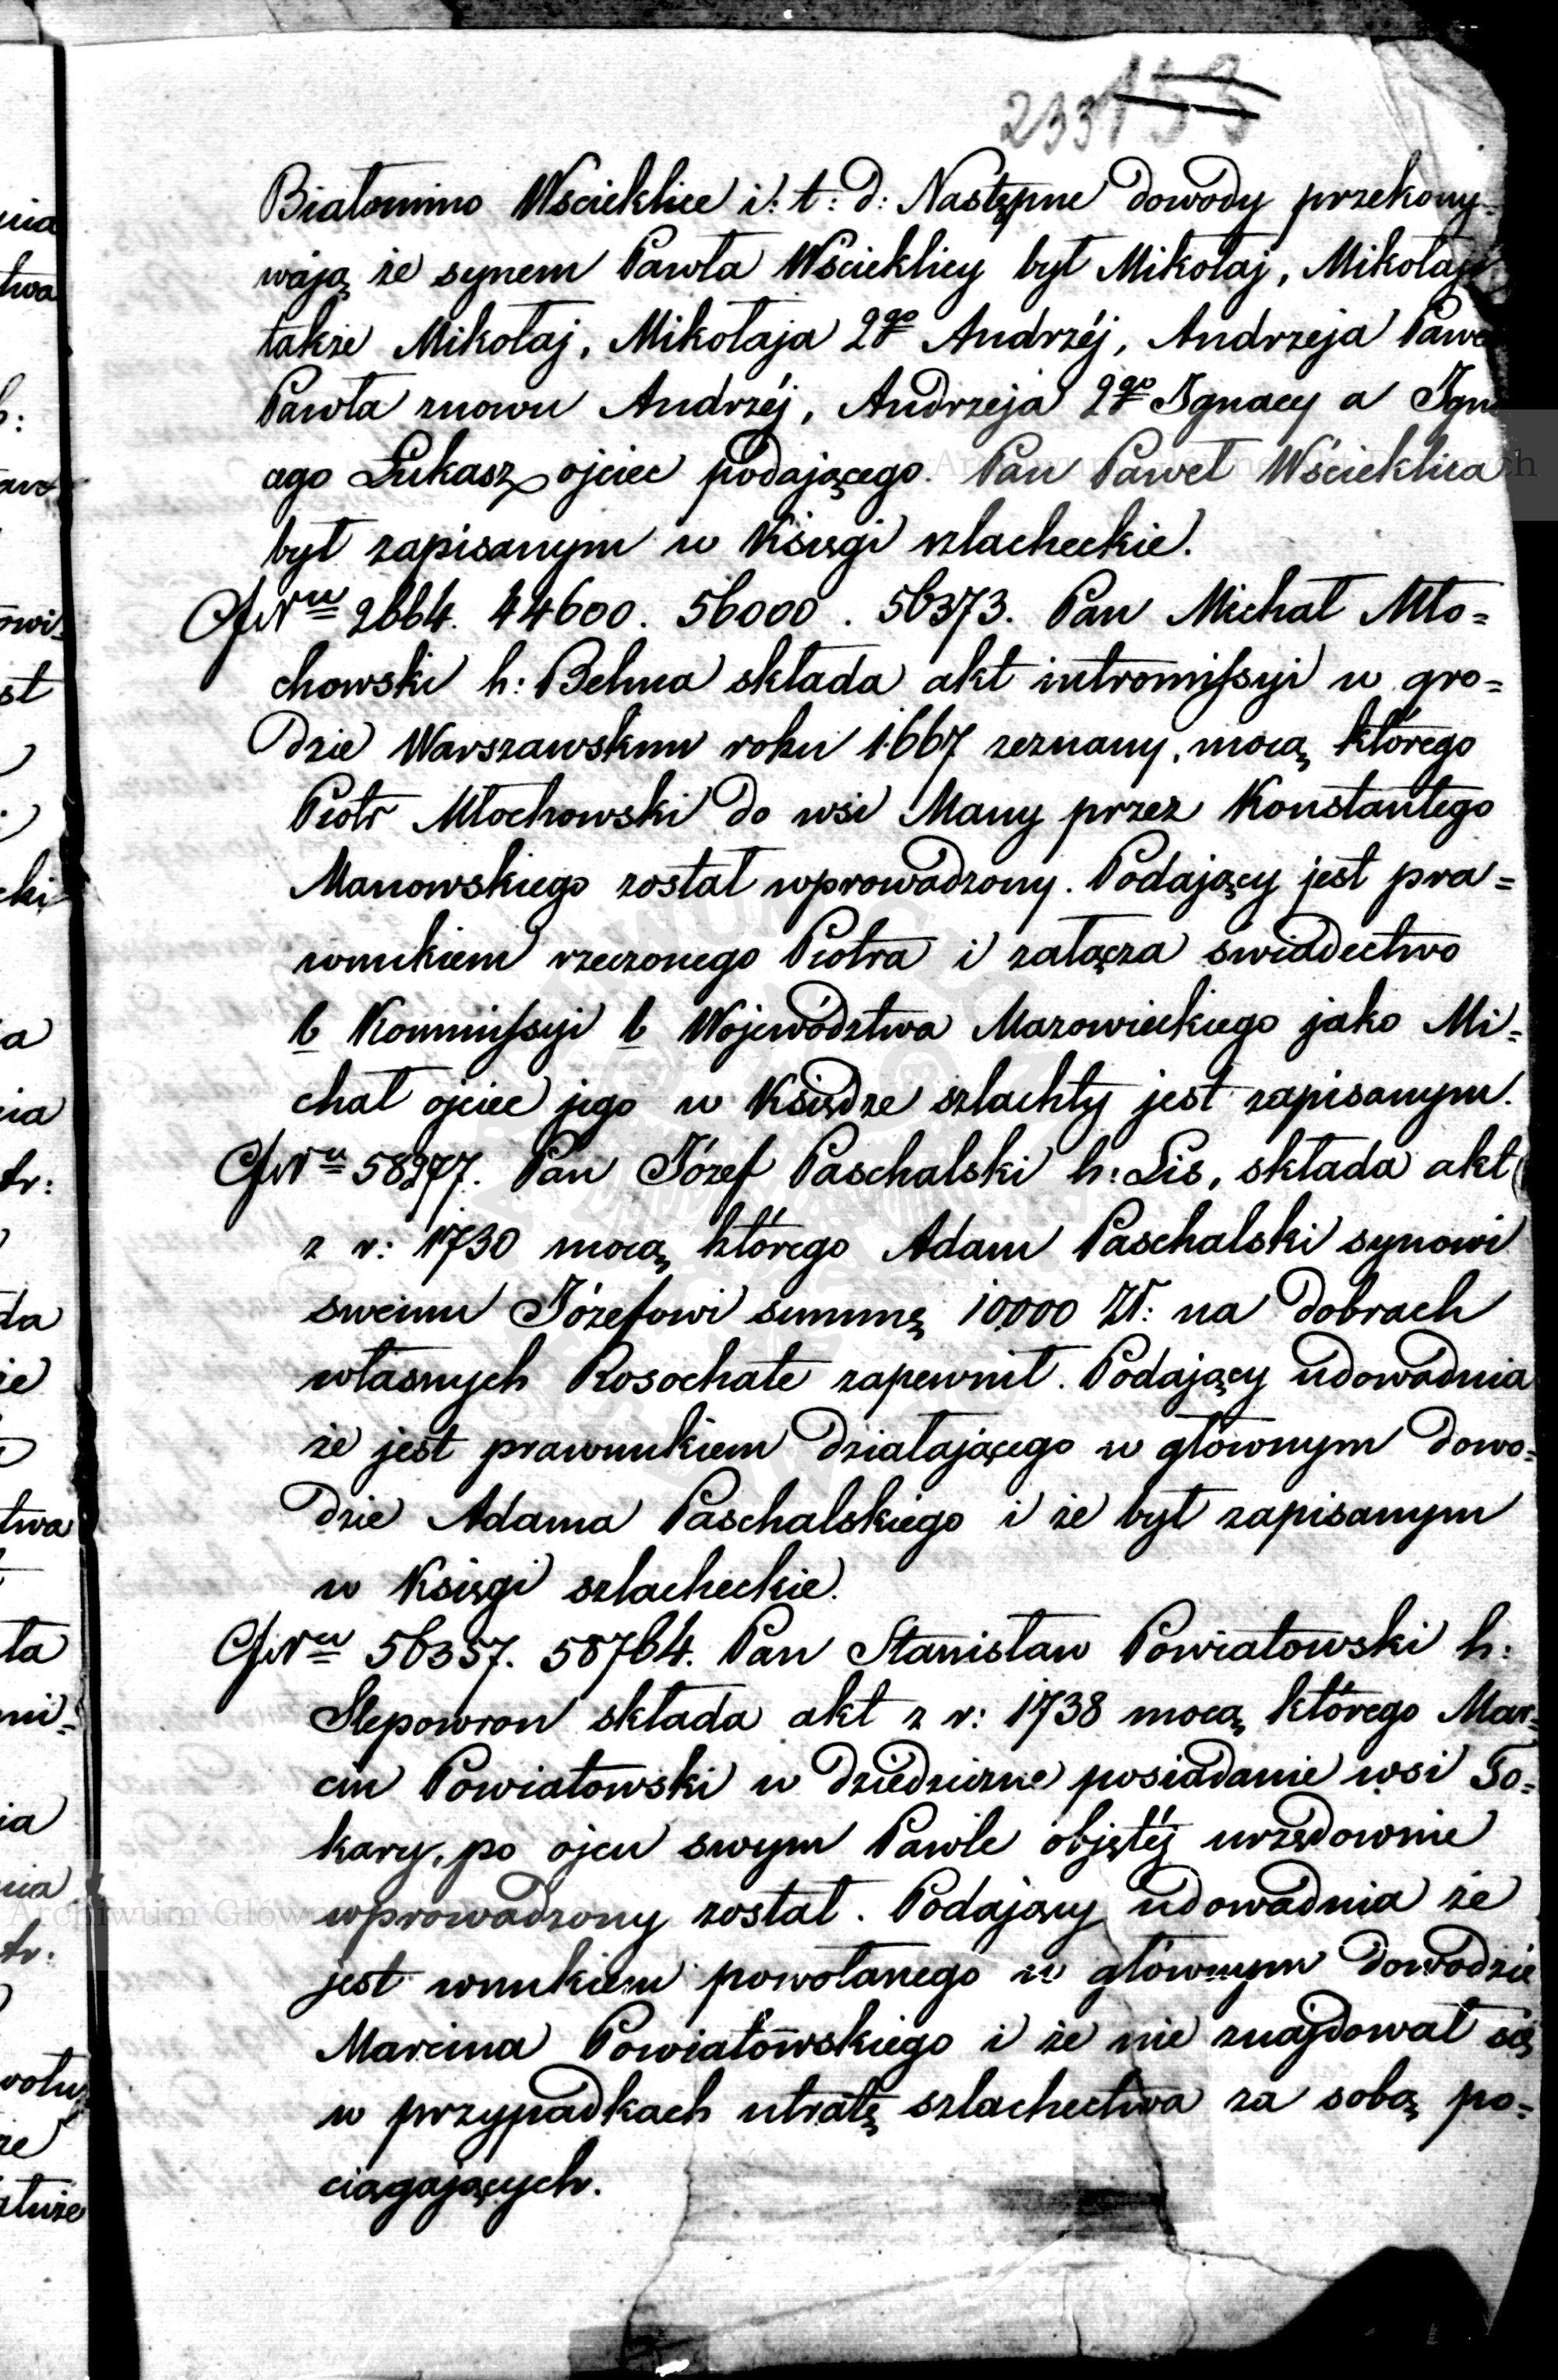 233 155
Białomino Wścieklice i: t: d: Następne dowody przekony-
wają że synem Pawła Wścieklicy był Mikołaj, Mikołaja
także Mikołaj, Mikołaja 2go Andrzéj, Andrzeja Pawe
Pawła znowu Andrzéj, Andrzeja 2go Ignacy a Igna
cego Łukasz ojciec podającego. Pan Paweł Wścieklica
był zapisanym w Księgi szlacheckie.
2664. 44600. 56000. 56373. Pan Michał Mło=
chowski h: Belina składa akt intromissyi w gro=
dzie Warszawskim roku 1667 zeznany, mocą którego
Piotr Młochowski do wsi Many przez Konstantego
Manowskiego został wprowadzony. Podający jest pra=
wnukiem rzeczonego Piotra i załącza świadectwo
b Kommissyi b Województwa Mazowieckiego jako Mi=
chał ojciec jego w Księdze szlachty jest zapisanym.
58977. Pan Józef Paschalski h: Lis, składa akt
z r: 1730 mocą którego Adam Paschalski synowi
swemu Józefowi summę 10,000 Zł: na dobrach
własnych Rosochate zapewnił. Podający udowadnia
że jest prawnukiem działającego w głównym dowo=
dzie Adama Paschalskiego i że był zapisanym
w Księgi szlacheckie.
56357. 58764. Pan Stanisław Powiatowski h:
Slepowron składa akt z r: 1738 mocą którego Mar=
cin Powiatowski w dziedziczne posiadanie wsi To=
kary, po ojcu swym Pawle objętéj urzędownie
wprowadzony został. Podający udowadnia że
jest wnukiem powołanego w głównym dowodzie
Marcina Powiatowskiego i że nie znajdował się
w przypadkach utratę szlachectwa za sobą po=
ciągających.